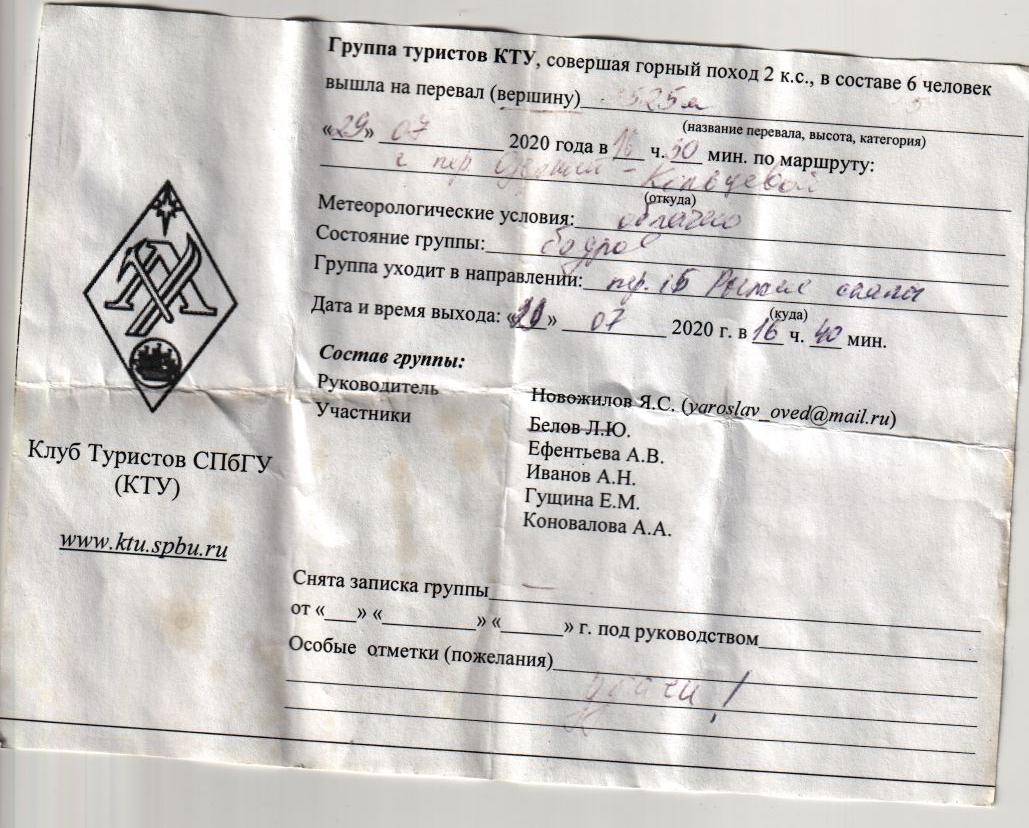 Группа туристов КТУ, совершая горный поход 2 к.с., в составе 6 человек
вышла на перевал (вершину) 3525м
(название перевала, высота, категория)
«29» 07 2020 года в 16 ч. 30 мин. по маршруту:
с пер. - Кольцевой
(откуда)
Метеорологические условия: облачно
Состояние группы: бодрое
Группа уходит в направлении: пер. 1Б Рыжие скалы
(куда)
Дата и время выхода: « » 07 2020 г. в 16 ч. 40 мин.
Состав группы:
Руководитель Новожилов Я.С. (yaroslav_oved@mail.ru)
Участники Белов Л.Ю.
Ефентьева А.В.
Иванов А.Н.
Гущина Е.М.
Коновалова А.А.
Клуб Туристов СПбГУ
(КТУ)
www.ktu.spbu.ru
Снята записка группы —
от «___» «_________» «______» г. под руководством
Особые отметки (пожелания)
Удачи!